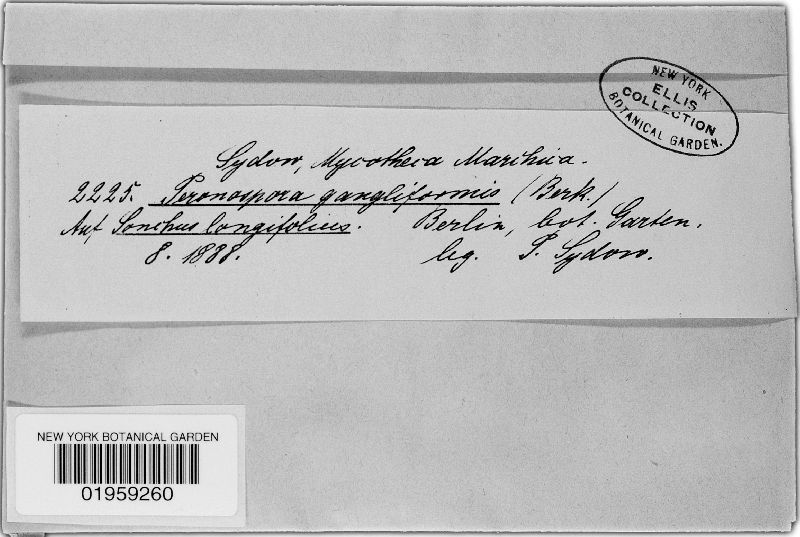 NEW YORK
ELLIS
COLLECTION
BOTANICAL GARDEN.
Sydow, Mycotheca Marchica.
2225. Peronospora gangliformis (Berk.)
Auf Sonchus longifolius. Berlin, bot. Garten.
8. 1888. leg. P. Sydow.
NEW YORK BOTANICAL GARDEN
01959260